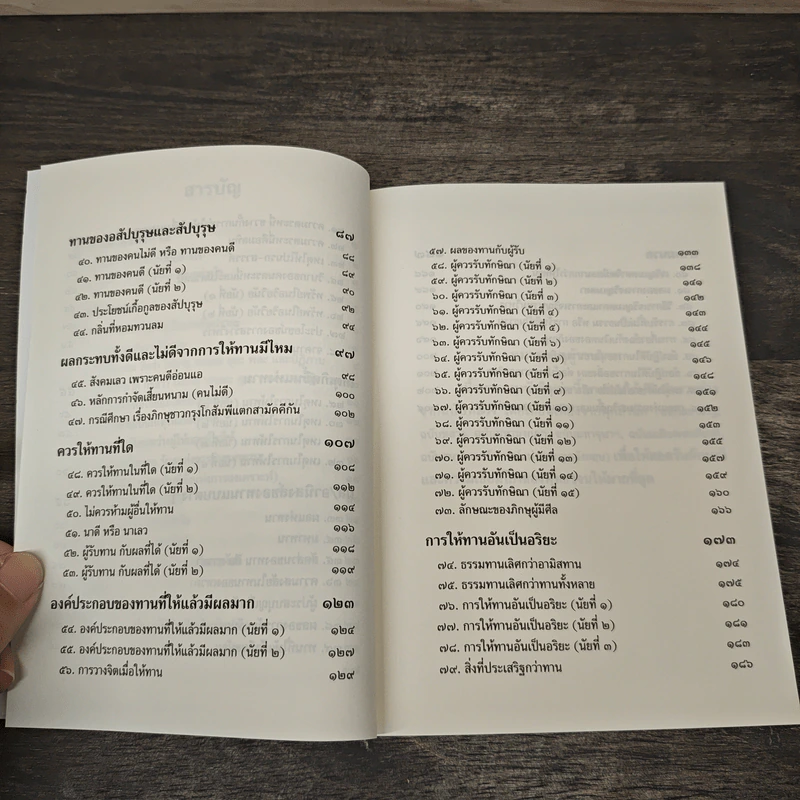 ทานของอสัปบุรุษและสัปบุรุษ ๘๗
๔๐. ทานของคนไม่ดี หรือ ทานของคนดี ๘๘
๔๑. ทานของคนดี (นัยที่ ๑) ๘๙
๔๒. ทานของคนดี (นัยที่ ๒) ๙๐
๔๓. ประโยชน์เกื้อกูลของสัปบุรุษ ๙๒
๔๔. กลิ่นที่หอมทวนลม ๙๔
ผลกระทบทั้งดีและไม่ดีจากการให้ทานมีไหม ๙๗
๔๕. สังคมเลว เพราะคนดีอ่อนแอ ๙๘
๔๖. หลักการกำจัดเสี้ยนหนาม (คนไม่ดี) ๑๐๐
๔๗. กรณีศึกษา เรื่องภิกษุชาวกรุงโกสัมพีแตกสามัคคีกัน ๑๐๒
ควรให้ทานที่ใด ๑๐๗
๔๘. ควรให้ทานในที่ใด (นัยที่ ๑) ๑๐๘
๔๙. ควรให้ทานในที่ใด (นัยที่ ๒) ๑๑๒
๕๐. ไม่ควรห้ามผู้อื่นให้ทาน ๑๑๔
๕๑. นาดี หรือ นาเลว ๑๑๖
๕๒. ผู้รับทาน กับผลที่ได้ (นัยที่ ๑) ๑๑๘
๕๓. ผู้รับทาน กับผลที่ได้ (นัยที่ ๒) ๑๑๙
องค์ประกอบของทานที่ให้แล้วมีผลมาก ๑๒๓
๕๔. องค์ประกอบของทานที่ให้แล้วมีผลมาก (นัยที่ ๑) ๑๒๔
๕๕. องค์ประกอบของทานที่ให้แล้วมีผลมาก (นัยที่ ๒) ๑๒๗
๕๖. การวางจิตเมื่อให้ทาน ๑๒๙
๕๗. ผลของทานกับผู้รับ ๑๓๓
๕๘. ผู้ควรรับทักษิณา (นัยที่ ๑) ๑๓๘
๕๙. ผู้ควรรับทักษิณา (นัยที่ ๒) ๑๔๑
๖๐. ผู้ควรรับทักษิณา (นัยที่ ๓) ๑๔๒
๖๑. ผู้ควรรับทักษิณา (นัยที่ ๔) ๑๔๓
๖๒. ผู้ควรรับทักษิณา (นัยที่ ๕) ๑๔๔
๖๓. ผู้ควรรับทักษิณา (นัยที่ ๖) ๑๔๕
๖๔. ผู้ควรรับทักษิณา (นัยที่ ๗) ๑๔๖
๖๕. ผู้ควรรับทักษิณา (นัยที่ ๘) ๑๔๘
๖๖. ผู้ควรรับทักษิณา (นัยที่ ๙) ๑๕๑
๖๗. ผู้ควรรับทักษิณา (นัยที่ ๑๐) ๑๕๒
๖๘. ผู้ควรรับทักษิณา (นัยที่ ๑๑) ๑๕๓
๖๙. ผู้ควรรับทักษิณา (นัยที่ ๑๒) ๑๕๕
๗๐. ผู้ควรรับทักษิณา (นัยที่ ๑๓) ๑๕๗
๗๑. ผู้ควรรับทักษิณา (นัยที่ ๑๔) ๑๕๙
๗๒. ผู้ควรรับทักษิณา (นัยที่ ๑๕) ๑๖๐
๗๓. ลักษณะของภิกษุผู้มีศีล ๑๖๖
การให้ทานอันเป็นอริยะ ๑๗๓
๗๔. ธรรมทานเลิศกว่าอามิสทาน ๑๗๔
๗๕. ธรรมทานเลิศกว่าทานทั้งหลาย ๑๗๕
๗๖. การให้ทานอันเป็นอริยะ (นัยที่ ๑) ๑๘๐
๗๗. การให้ทานอันเป็นอริยะ (นัยที่ ๒) ๑๘๑
๗๘. การให้ทานอันเป็นอริยะ (นัยที่ ๓) ๑๘๓
๗๙. สิ่งที่ประเสริฐกว่าทาน ๑๘๖